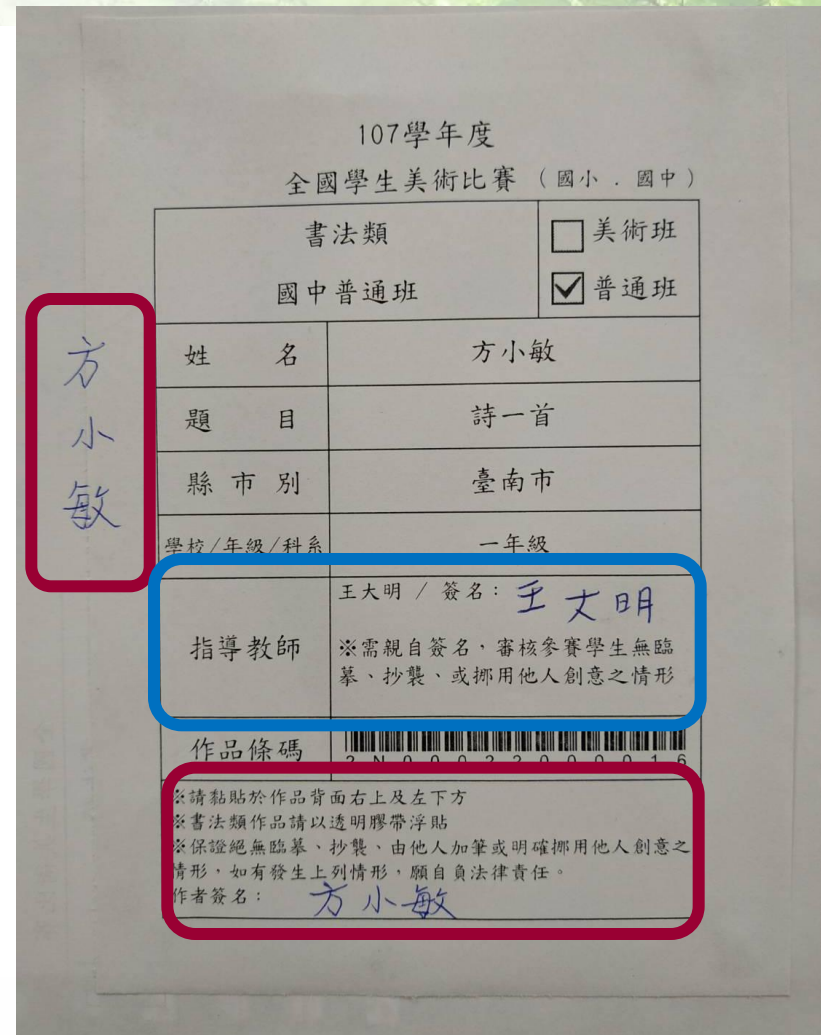 107學年度
全國學生美術比賽（國小．國中）
書法類
國中普通班
美術班
普通班
方小敏
姓 名
方小敏
題 目
詩一首
縣 市 別
臺南市
學校/年級/科系
一年級
指導教師
王大明 / 簽名：王大明
※需親自簽名，審核參賽學生無臨
摹、抄襲、或挪用他人創意之情形
作品條碼
※請黏貼於作品背面右上及左下方
※書法類作品請以透明膠帶浮貼
※保證絕無臨摹、抄襲、由他人加筆或明確挪用他人創意之
情形，如有發生上列情形，願自負法律責任。
作者簽名：方小敏